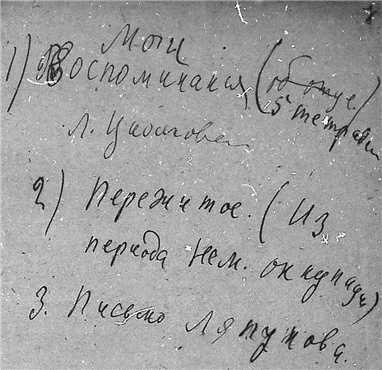 Мои
1) Воспоминания (об отце)
5 тетрадей
Л. Циолковск
2) Пережитое. (Из
периода нем. оккупации)
3. Письмо Ляпунова.